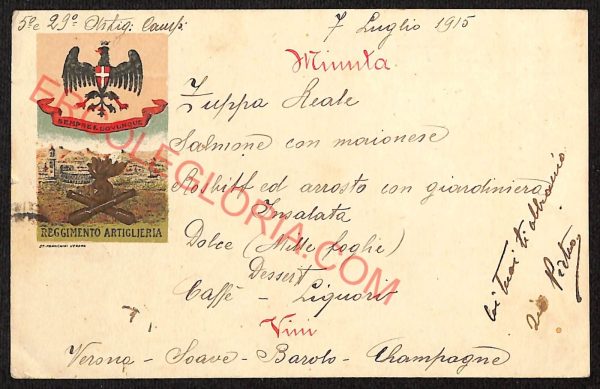 5º e 29º Artig. Camp.
7 Luglio 1915
Minuta
SEMPRE E DOVUNQUE
REGGIMENTO ARTIGLIERIA
Zuppa Reale
Salmone con maionese
Rosbiff ed arrosto con giardiniera
Insalata
Dolce (Mille foglie)
Dessert
Caffè - Liquori
Vini
Verona - Soave - Barolo - Champagne
ti abbraccio
zio Pietro
ERCOLEGLORIA.COM